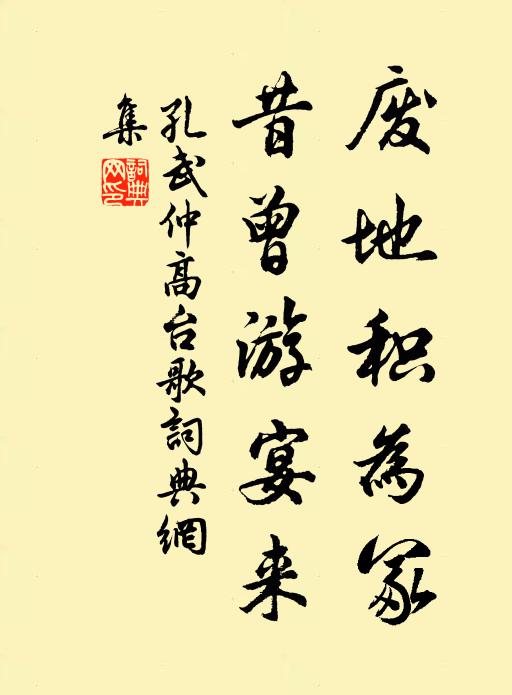 废地积為冢
昔曾游宴来
孔武仲高台歌詞典網
集
詞典網印